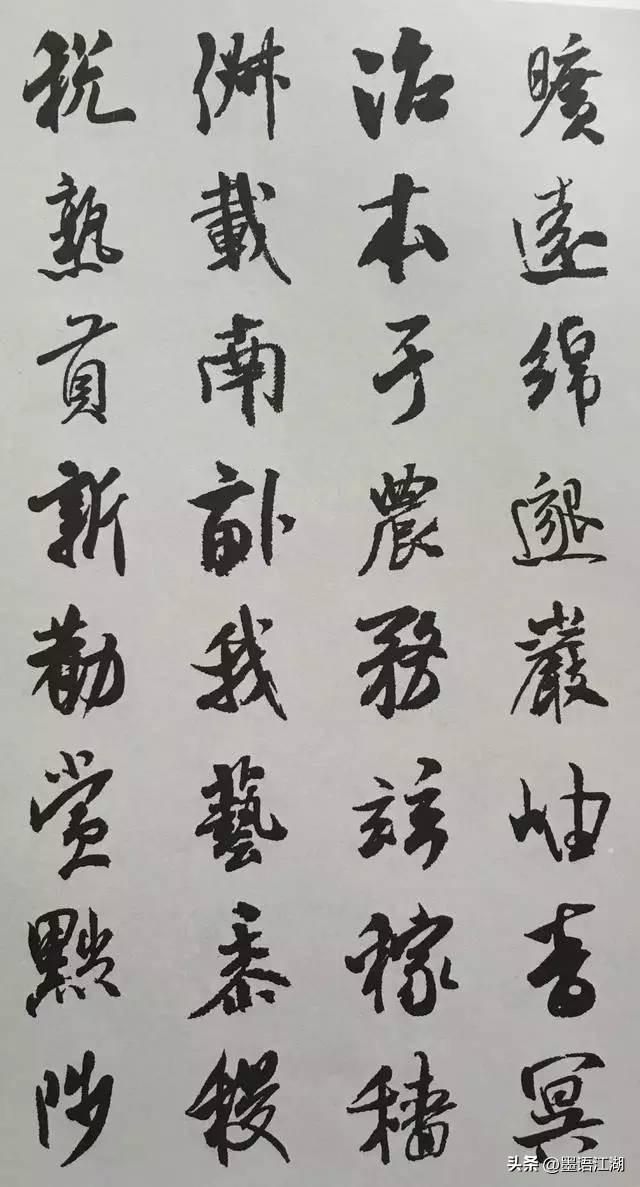 曠遠綿邈巖岫杳冥
治本于農務茲稼穡
俶載南畝我藝黍稷
稅熟貢新勸賞黜陟
头条 @墨语江湖